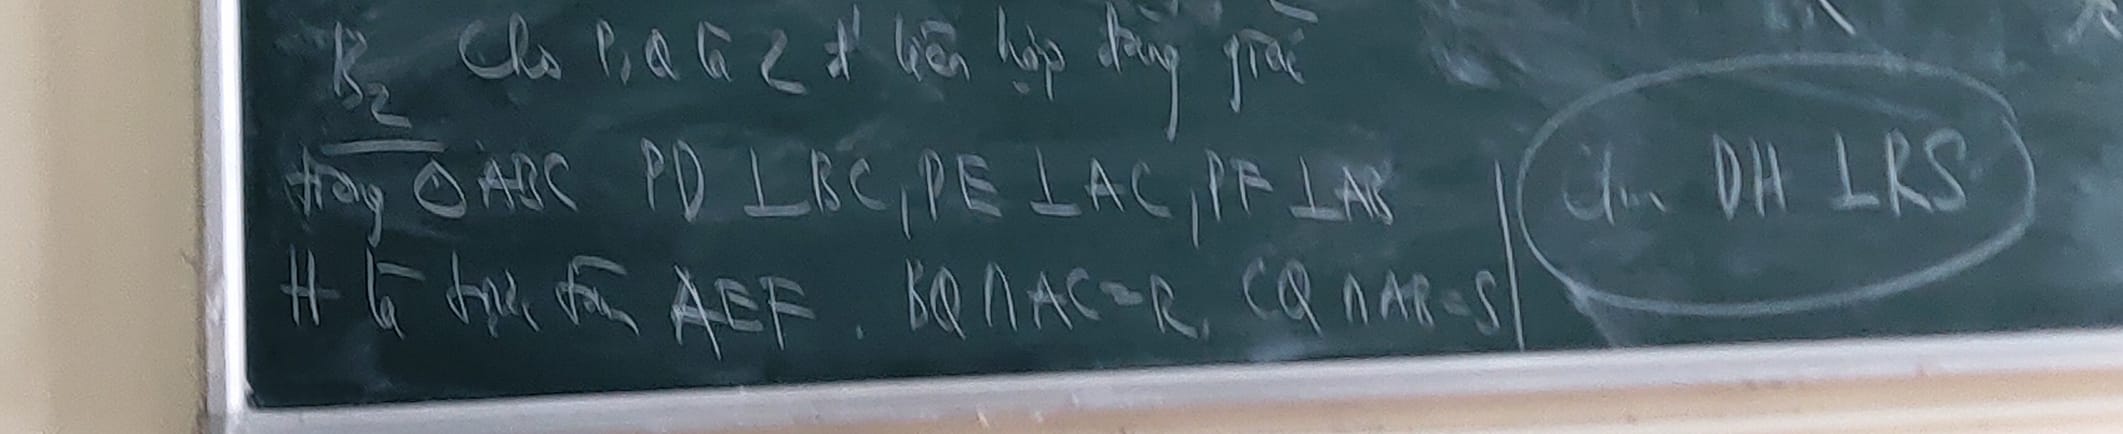 B2 Cho P, Q là 2 đ' liên hợp đẳng giác
trong △ABC PD ⊥ BC, PE ⊥ AC, PF ⊥ AB
H là trực tâm AEF. BQ ∩ AC = R, CQ ∩ AB = S
DH ⊥ RS